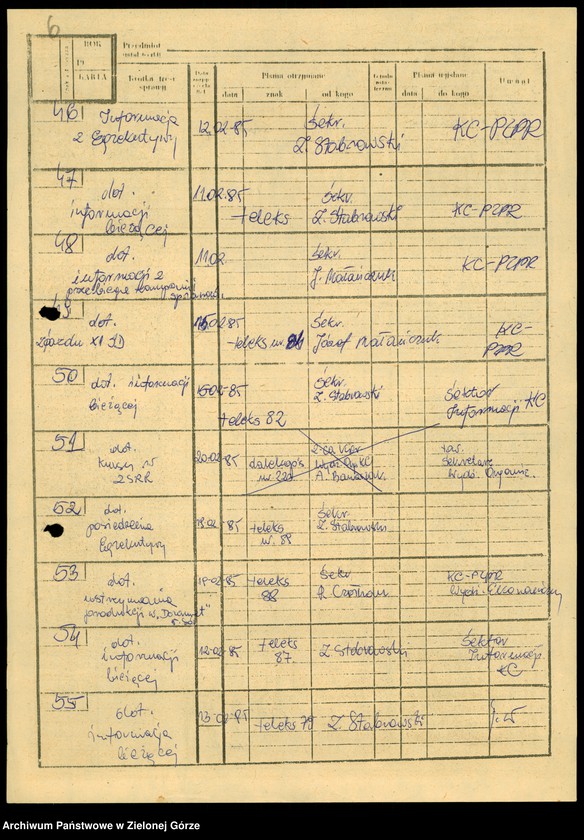 6
ROK
19
KARTA
Przedmiot
Krótka treść
sprawy
Pisma otrzymane
Pisma wysłane
Uwagi
data
znak
od kogo
data
do kogo
46 Informacja
z Egzekutywy
12.02.85
Sekr.
Z. Stabrowski
KC-PZPR
47
dot.
informacji
bieżącej
11.02.85
teleks
Sekr.
Z. Stabrowski
KC-PZPR
48
dot.
informacji z
przebiegu kampanii
11.02
Sekr.
J. Matańczuk
KC-PZPR
49
dot.
zjazdu XI ZD
15.02.85
teleks nr
Sekr.
Józef Matańczuk
KC-
PZPR
50
dot. informacji
bieżącej
15.02.85
teleks 82
Sekr.
Z. Stabrowski
Sektor
Informacji KC
51
dot.
Kursy w
ZSRR
20.02.85
dalekopis
tow.
Sekretarz
Wydz. Organiz.
52
dot.
posiedzenia
Egzekutywy
18.02.85
teleks
Sekr.
Z. Stabrowski
53
dot.
wstrzymania
produkcji w
85
teleks
88
Sekr
KC-PZPR
54
dot.
informacji
bieżącej
12.02.85
teleks
87.
Z. Stabrowski
Sektor
Informacji
KC
55
dot.
informacja
bieżącej
13.02.85
teleks 79
Z. Stabrowski
j.w
Archiwum Państwowe w Zielonej Górze